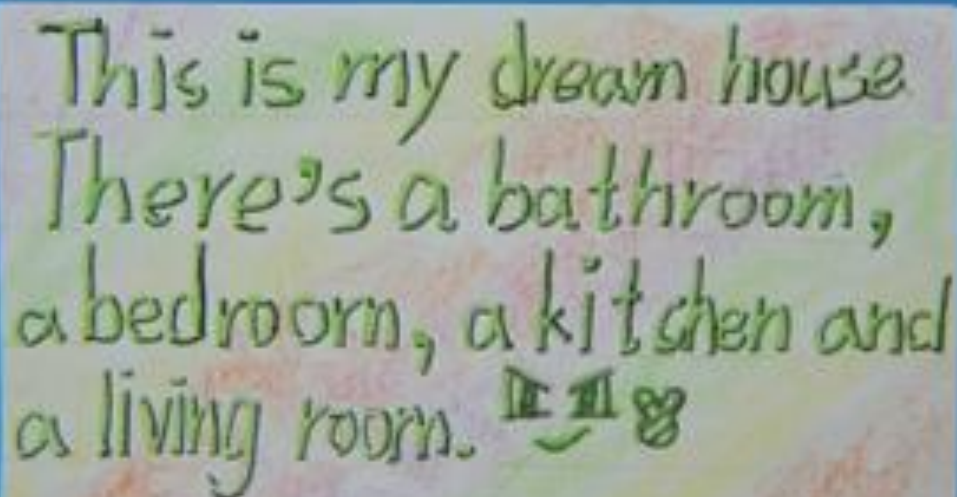 This is my dream house
There's a bathroom,
a bedroom, a kitchen and
a living room.